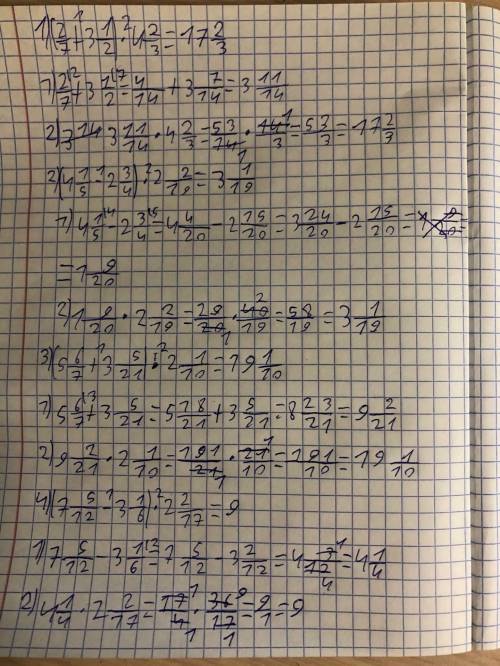 1) (2/7 + 3 1/2) · 4 2/3 = 17 2/3
1) 2/7 + 3 1/2 = 4/14 + 3 7/14 = 3 11/14
2) 3 11/14 · 4 2/3 = 53/14 · 14/3 = 53/3 = 17 2/3
2) (4 1/5 - 2 3/4) · 2 2/19 = 3 1/19
1) 4 1/5 - 2 3/4 = 4 4/20 - 2 15/20 = 3 24/20 - 2 15/20 =
= 1 9/20
2) 1 9/20 · 2 2/19 = 29/20 · 40/19 = 58/19 = 3 1/19
3) (5 6/7 + 3 5/21) · 2 1/10 = 19 1/10
1) 5 6/7 + 3 5/21 = 5 18/21 + 3 5/21 = 8 23/21 = 9 2/21
2) 9 2/21 · 2 1/10 = 191/21 · 21/10 = 191/10 = 19 1/10
4) (7 5/12 - 3 1/6) · 2 2/17 = 9
1) 7 5/12 - 3 1/6 = 7 5/12 - 3 2/12 = 4 3/12 = 4 1/4
2) 4 1/4 · 2 2/17 = 17/4 · 36/17 = 9/1 = 9